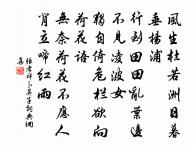 風生杜若洲日暮
垂楊浦
行到田田亂葉邊
不見凌波女
獨自倚危欄欲向
荷花語
無奈荷花不應人
背立啼紅雨